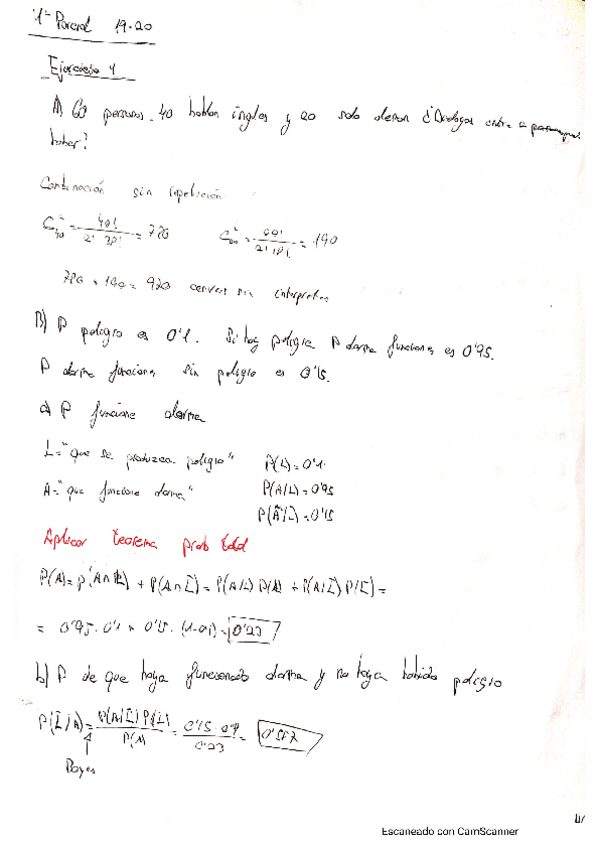 1º Parcial 19-20
Ejercicio 1
A) 60 personas. 40 hablan ingles y 20 solo aleman ¿Dialogos entre 2 personas
haber?
Combinación sin repetición
C₄₀² = 40! / 2! 38! = 780 C₂₀² = 20! / 2! 18! = 190
780 + 190 = 970 sin interpretes
B) P peligro es 0'1. Si hay peligro P alarma funciona es 0'95.
P alarma funciona sin peligro es 0'15.
a) P funcione alarma
L = "que se produzca peligro" P(L) = 0'1
A = "que funcione alarma" P(A/L) = 0'95
P(A/L̄) = 0'15
Aplicar teorema prob total
P(A) = P(A∩L) + P(A∩L̄) = P(A/L) P(L) + P(A/L̄) P(L̄) =
= 0'95 · 0'1 + 0'15 · (1-0'1) = 0'23
b) P de que haya funcionado alarma y no haya habido peligro
P(L̄/A) = P(A/L̄) P(L̄) / P(A) = 0'15 · 0'9 / 0'23 = 0'587
Bayes
Escaneado con CamScanner